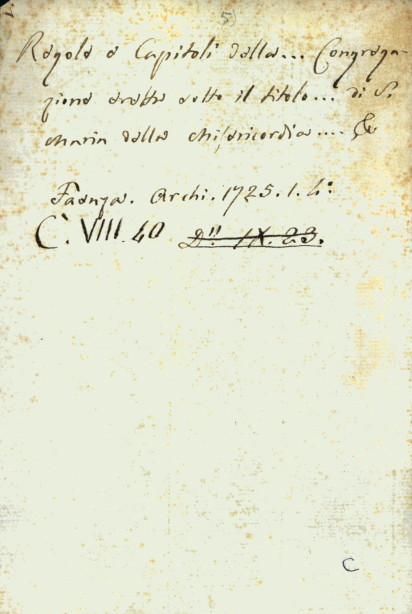 5)
Regole e Capitoli della... Congrega-
zione eretta sotto il titolo... di S.
Maria della Misericordia.... &c
Faenza. Archi. 1725. 1. 4:
C. VIII. 40 D!! IX. 23.
C